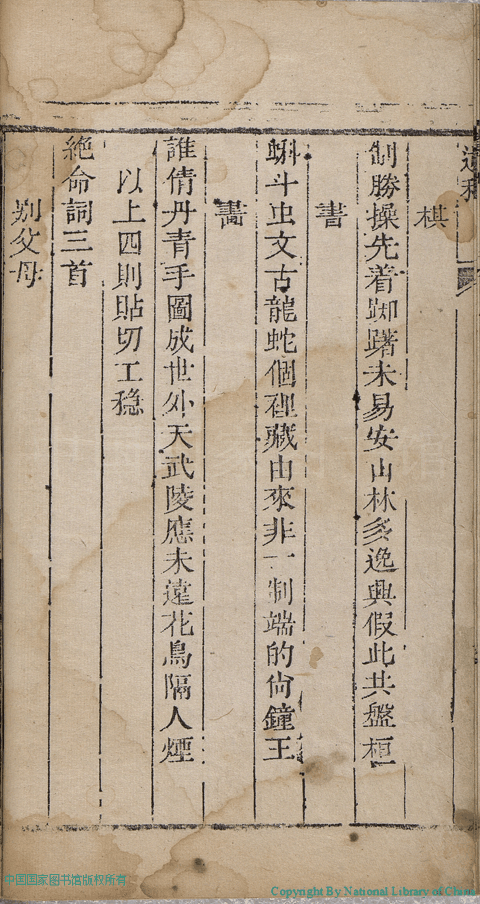 棋
制勝操先着踟躇未易安山林多逸興假此共盤桓
書
蝌斗虫文古龍蛇個裡藏由來非一制端的尙鐘王
畵
誰倩丹青手圖成世外天武陵應未遠花鳥隔人煙
以上四則貼切工穏
絶命詞三首
别父母
中国国家图书馆版权所有
Copyright By National Library of China